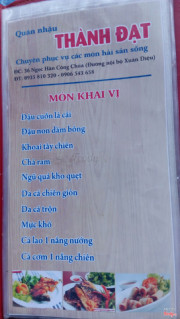 Quán nhậu
THÀNH ĐẠT
Chuyên phục vụ các món hải sản sống
ĐC: 36 Ngọc Hân Công Chúa (Đường nội bộ Xuân Diệu)
ĐT: 0935 616 220 - 0906 543 654
MÓN KHAI VỊ
Đậu cuốn lá cải
Đậu non dầm bông
Khoai tây chiên
Chả ram
Ngũ quả kho quẹt
Da cá chiên giòn
Da cá trộn
Mực khô
Cá lao 1 nắng nướng
Cá cơm 1 nắng chiên